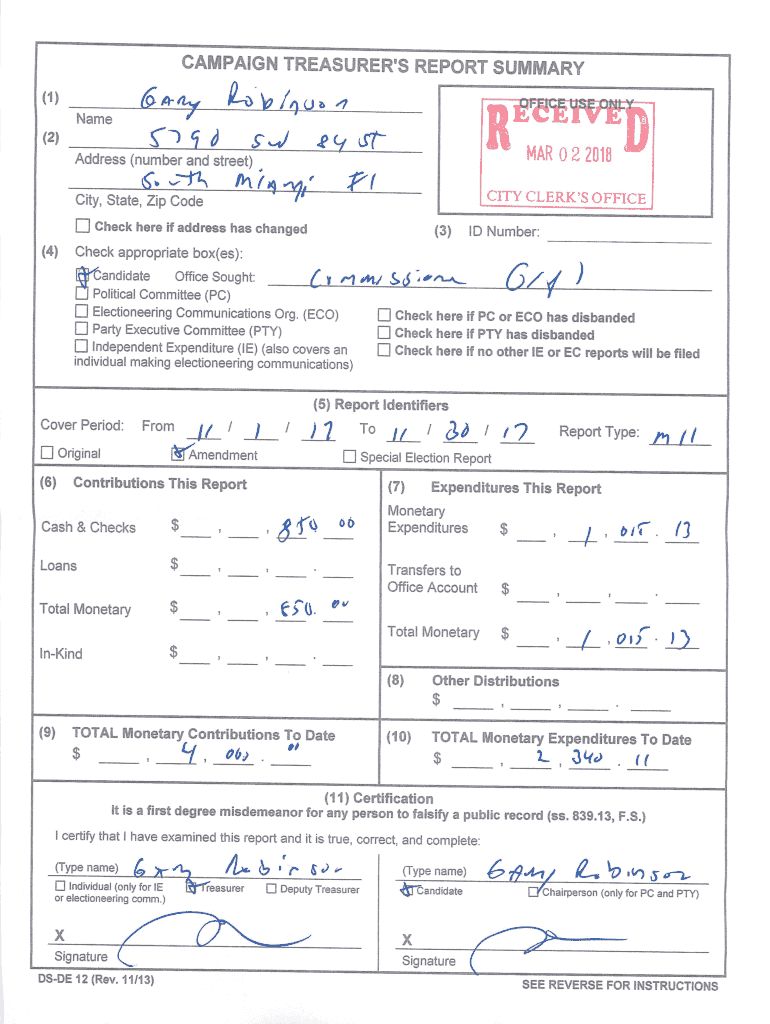 CAMPAIGN TREASURER'S REPORT SUMMARY
(1) Gary Robinson
Name
OFFICE USE ONLY
RECEIVED
MAR 02 2018
CITY CLERK'S OFFICE
(2) 5790 SW 84 ST
Address (number and street)
South Miami Fl
City, State, Zip Code
Check here if address has changed
(3) ID Number:
(4) Check appropriate box(es):
Candidate Office Sought: Commissioner
Political Committee (PC)
Electioneering Communications Org. (ECO)
Party Executive Committee (PTY)
Independent Expenditure (IE) (also covers an
individual making electioneering communications)
Check here if PC or ECO has disbanded
Check here if PTY has disbanded
Check here if no other IE or EC reports will be filed
(5) Report Identifiers
Cover Period: From 11 / 1 / 17 To 11 / 30 / 17 Report Type: M11
Original Amendment Special Election Report
(6) Contributions This Report
Cash & Checks $ , , 850 00
Loans $ , , .
Total Monetary $ , , 850. 00
In-Kind $ , , .
(7) Expenditures This Report
Monetary
Expenditures $ , 1 , 015 . 13
Transfers to
Office Account $ , , .
Total Monetary $ , 1 , 015 . 13
(8) Other Distributions
$ , , .
(9) TOTAL Monetary Contributions To Date
$ , 4 , 000 . 00
(10) TOTAL Monetary Expenditures To Date
$ , 2 , 340 . 11
(11) Certification
It is a first degree misdemeanor for any person to falsify a public record (ss. 839.13, F.S.)
I certify that I have examined this report and it is true, correct, and complete:
(Type name) Gary Robinson
Individual (only for IE
or electioneering comm.) Treasurer Deputy Treasurer
X
Signature
(Type name) Gary Robinson
Candidate Chairperson (only for PC and PTY)
X
Signature
DS-DE 12 (Rev. 11/13)
SEE REVERSE FOR INSTRUCTIONS